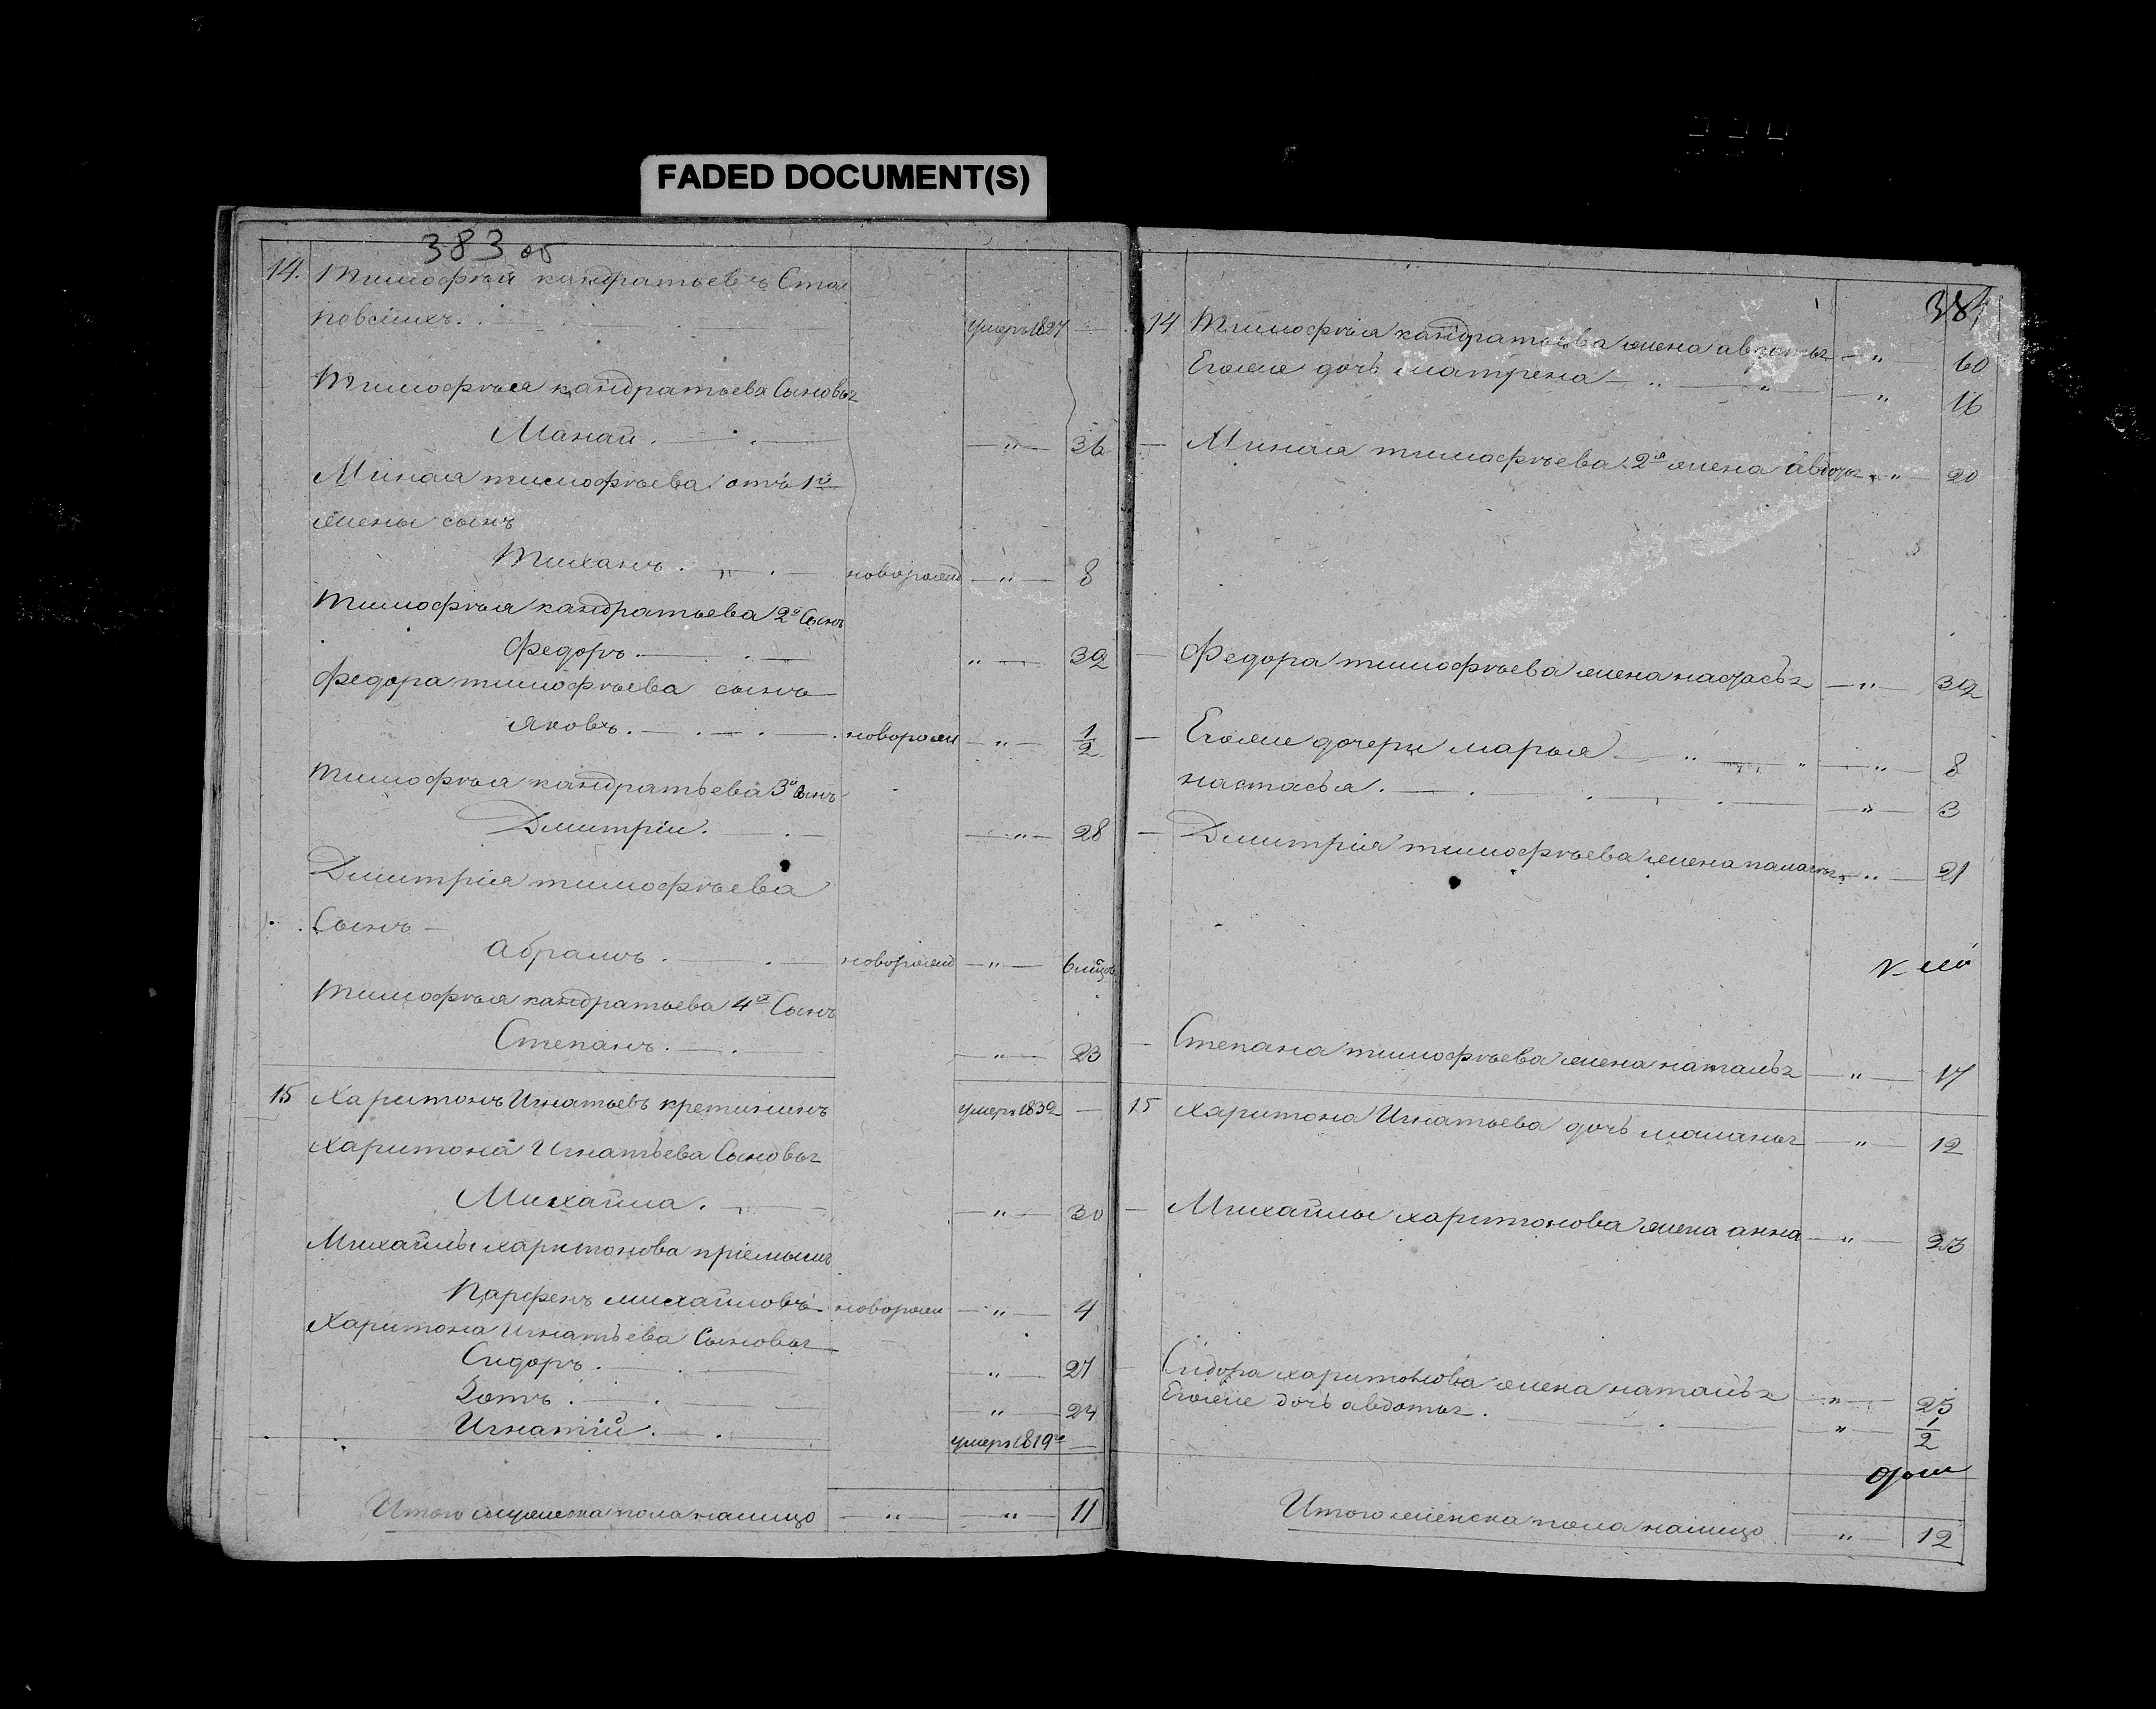 FADED DOCUMENT(S)
383 об
14. Тимофѣй кандратьевъ Стол
повскихъ. умеръ 1827 —
Тимофѣея кандратьева Сыновья
Манай. — " — 36
Миная тимофѣева отъ 1й
жены сынъ
Тиханъ. новорожд — " — 8
Тимофѣя кандратьева 2й Сынъ
Федоръ. " — 32
Федора тимофѣева сынъ
Яковъ. новорожд — " — 1/2
Тимофѣя кандратьева 3й Сынъ
Дмитріи. — " — 28
Дмитрія тимофѣева
Сынъ —
Абрамъ. новорожд — " — 6 мѣцов
Тимофѣя кандратьева 4й Сынъ
Степанъ. — " — 23
15 Харитонъ Игнатьевъ кретининъ умеръ 1832 —
Харитона Игнатьева Сыновья
Михайла. — " — 30
Михайлы харитонова пріемышъ
Парфенъ михайловъ новорожд — " — 4
Харитона Игнатьева Сыновья
Сидоръ. — " — 27
Зотъ. — " — 24
Игнатій. умеръ 1819го —
Итого мужеска пола налицо — " — — " — 11
384
14 Тимофѣя кандратьева жена авдотья — " 60
Егоже дочь матрена — " — " 16
— Миная тимофѣева 2я жена авдотья — " — 20
— Федора тимофѣева жена настасья — " — 32
— Егоже дочери марья — " — 8
настасья. — " — 3
— Дмитрія тимофѣева жена палагья — " — 21
— Степана тимофѣева жена наталья — " — 17
15 Харитона Игнатьева дочь маланья — " — 12
— Михайлы харитонова жена анна — " — 23
— Сидора харитонова жена наталья — " — 25
Егоже дочь авдотья. — " — 1/2
Итого женска пола налицо — " — 12